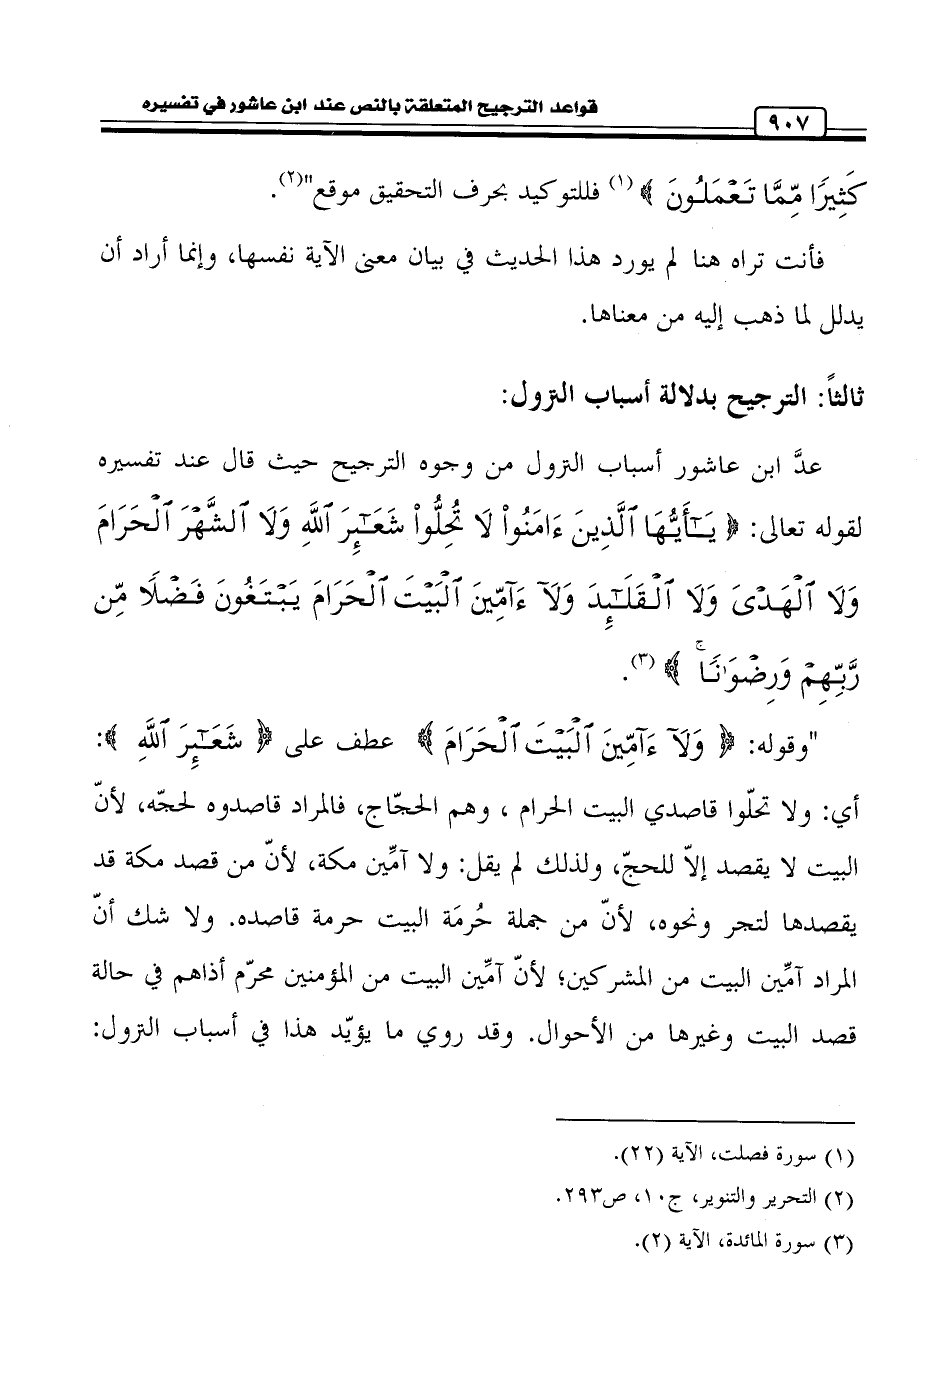 قواعد الترجيح المتعلقة بالنص عند ابن عاشور في تفسيره
٩٠٧
كَثِيرًا مِّمَّا تَعْمَلُونَ ﴾ (١) فللتوكيد بحرف التحقيق موقع"(٢).
فأنت تراه هنا لم يورد هذا الحديث في بيان معنى الآية نفسها، وإنما أراد أن
يدلل لما ذهب إليه من معناها.
ثالثاً: الترجيح بدلالة أسباب النزول:
عدَّ ابن عاشور أسباب النزول من وجوه الترجيح حيث قال عند تفسيره
لقوله تعالى: ﴿ يَـٰٓأَيُّهَا ٱلَّذِينَ ءَامَنُوا۟ لَا تُحِلُّوا۟ شَعَـٰٓئِرَ ٱللَّهِ وَلَا ٱلشَّهْرَ ٱلْحَرَامَ
وَلَا ٱلْهَدْىَ وَلَا ٱلْقَلَـٰٓئِدَ وَلَآ ءَآمِّينَ ٱلْبَيْتَ ٱلْحَرَامَ يَبْتَغُونَ فَضْلًا مِّن
رَّبِّهِمْ وَرِضْوَٰنًا ۚ ﴾ (٣).
"وقوله: ﴿ وَلَآ ءَآمِّينَ ٱلْبَيْتَ ٱلْحَرَامَ ﴾ عطف على ﴿ شَعَـٰٓئِرَ ٱللَّهِ ﴾:
أي: ولا تحلّوا قاصدي البيت الحرام ، وهم الحجّاج، فالمراد قاصدوه لحجّه، لأنّ
البيت لا يقصد إلاّ للحجّ، ولذلك لم يقل: ولا آمِّين مكة، لأنّ من قصد مكة قد
يقصدها لتجر ونحوه، لأنّ من جملة حُرمَة البيت حرمة قاصده. ولا شك أنّ
المراد آمِّين البيت من المشركين؛ لأنّ آمِّين البيت من المؤمنين محرّم أذاهم في حالة
قصد البيت وغيرها من الأحوال. وقد روي ما يؤيّد هذا في أسباب النزول:
(١) سورة فصلت، الآية (٢٢).
(٢) التحرير والتنوير، ج١٠، ص٢٩٣.
(٣) سورة المائدة، الآية (٢).